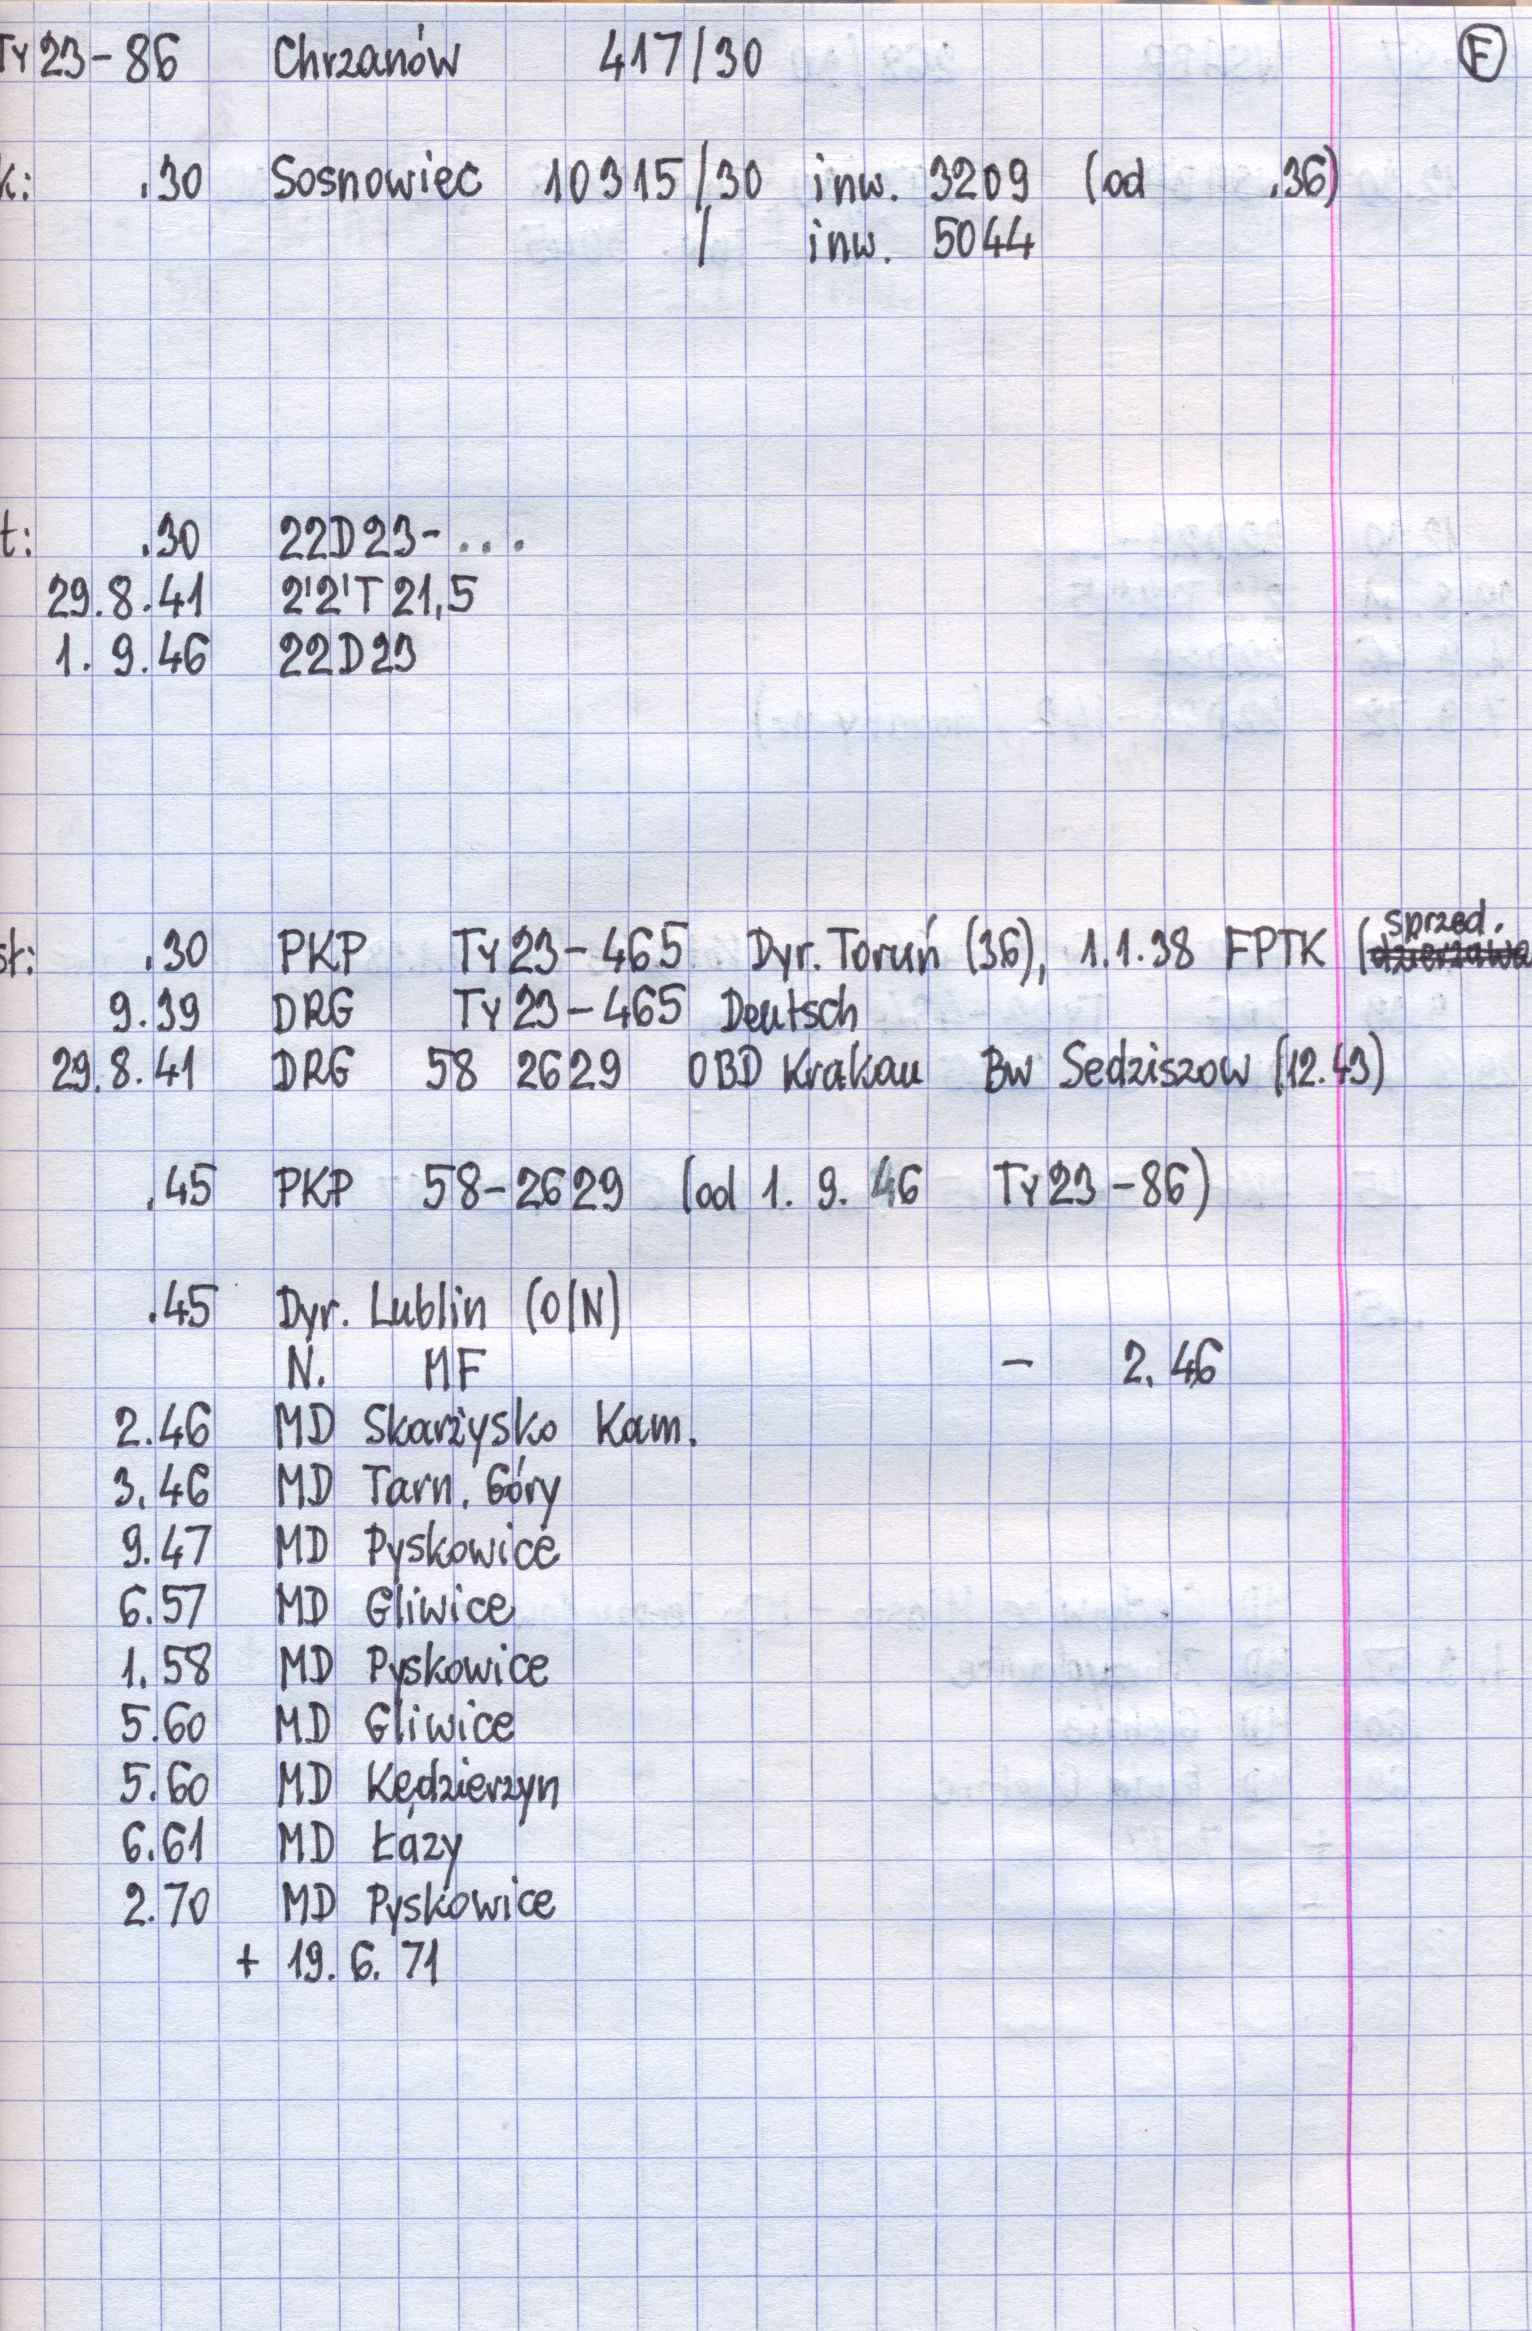 Ty23-86 Chrzanów 417/30 F
k: .30 Sosnowiec 10315/30 inw. 3209 (od .36)
/ inw. 5044
t: .30 22D23-...
29.8.41 2'2'T21,5
1.9.46 22D23
sprzed.
st: .30 PKP Ty23-465 Dyr. Toruń (36), 1.1.38 FPTK (dzierżawa
9.39 DRG Ty23-465 Deutsch
29.8.41 DRG 58 2629 OBD Krakau Bw Sedziszow (12.43)
.45 PKP 58-2629 (od 1.9.46 Ty23-86)
.45 Dyr. Lublin (O/N)
N. MF - 2.46
2.46 MD Skarżysko Kam.
3.46 MD Tarn. Góry
9.47 MD Pyskowice
6.57 MD Gliwice
1.58 MD Pyskowice
5.60 MD Gliwice
5.60 MD Kędzierzyn
6.61 MD Łazy
2.70 MD Pyskowice
+ 19.6.71